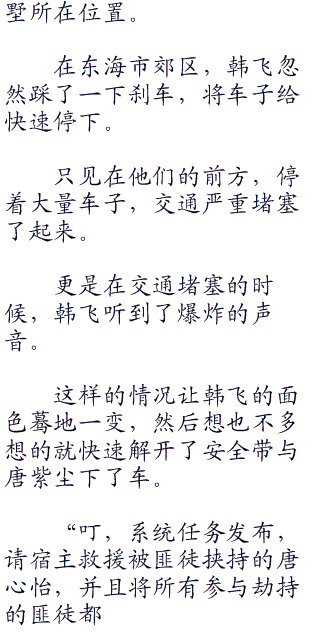 墅所在位置。
在东海市郊区，韩飞忽
然踩了一下刹车，将车子给
快速停下。
只见在他们的前方，停
着大量车子，交通严重堵塞
了起来。
更是在交通堵塞的时
候，韩飞听到了爆炸的声
音。
这样的情况让韩飞的面
色蓦地一变，然后想也不多
想的就快速解开了安全带与
唐紫尘下了车。
“叮，系统任务发布，
请宿主救援被匪徒挟持的唐
心怡，并且将所有参与劫持
的匪徒都